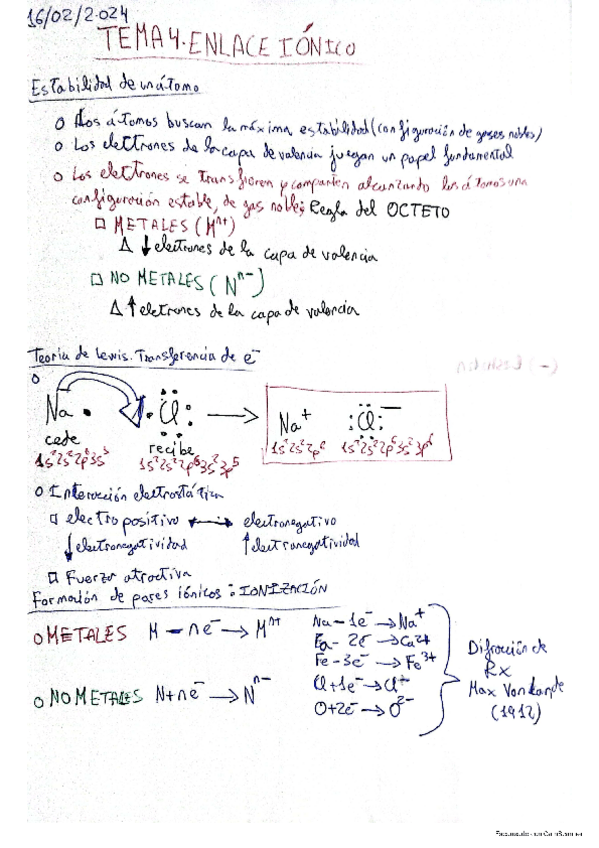 16/02/2.024
TEMA 4. ENLACE IÓNICO
Estabilidad de un átomo
O Los átomos buscan la máxima estabilidad (configuración de gases nobles)
O Los electrones de la capa de valencia juegan un papel fundamental
O Los electrones se transfieren y comparten alcanzando los átomos una
configuración estable, de gas noble; Regla del OCTETO
□ METALES (Mⁿ⁺)
Δ ↓ electrones de la capa de valencia
□ NO METALES (Nⁿ⁻)
Δ ↑ eletrones de la capa de valencia
Teoría de Lewis. Transferencia de e⁻
O
Na • • Cl: → Na⁺ :Cl:⁻
cede recibe
1s²2s²2p⁶3s¹ 1s²2s²2p⁶3s²3p⁵ 1s²2s²2p⁶ 1s²2s²2p⁶3s²3p⁶
O Interacción electrostática
□ electropositivo ↔ electronegativo
↓electronegatividad ↑electronegatividad
□ Fuerza atractiva
Formación de pares iónicos: IONIZACIÓN
O METALES M − ne⁻ → Mⁿ⁺
Na − 1e⁻ → Na⁺
2e⁻ → Ca²⁺
Fe − 3e⁻ → Fe³⁺
O NO METALES N + ne⁻ → Nⁿ⁻
Cl + 1e⁻ → Cl
O + 2e⁻ → O²⁻
Difracción de
RX
Max
(1912)